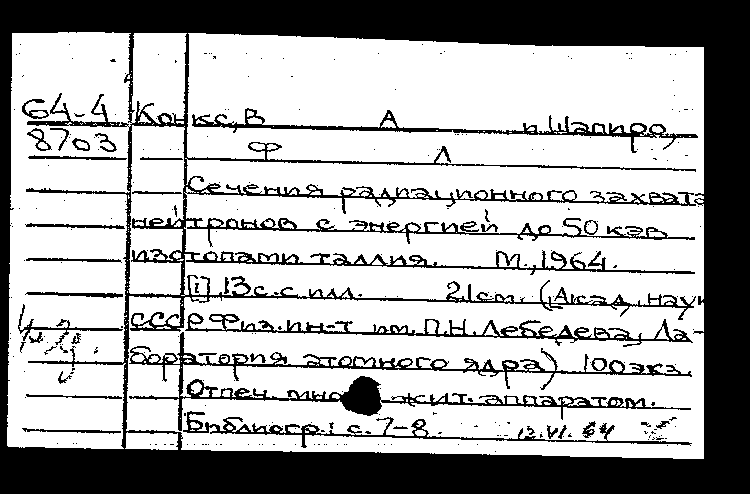 64-4 Конкс, В А и Шапиро,
8703 Ф Л
Сечения радиационного захвата
нейтронов с энергией до 50 кэв
изотопами таллия. М., 1964.
[1], 13 с. с илл. 21 cm. (Акад. наук
СССР Физ. ин-т им. П.Н. Лебедева, Ла-
боратория атомного ядра) 100 экз.
Отпеч. мно жит. аппаратом.
Библиогр.: с. 7-8. 12.VI.64